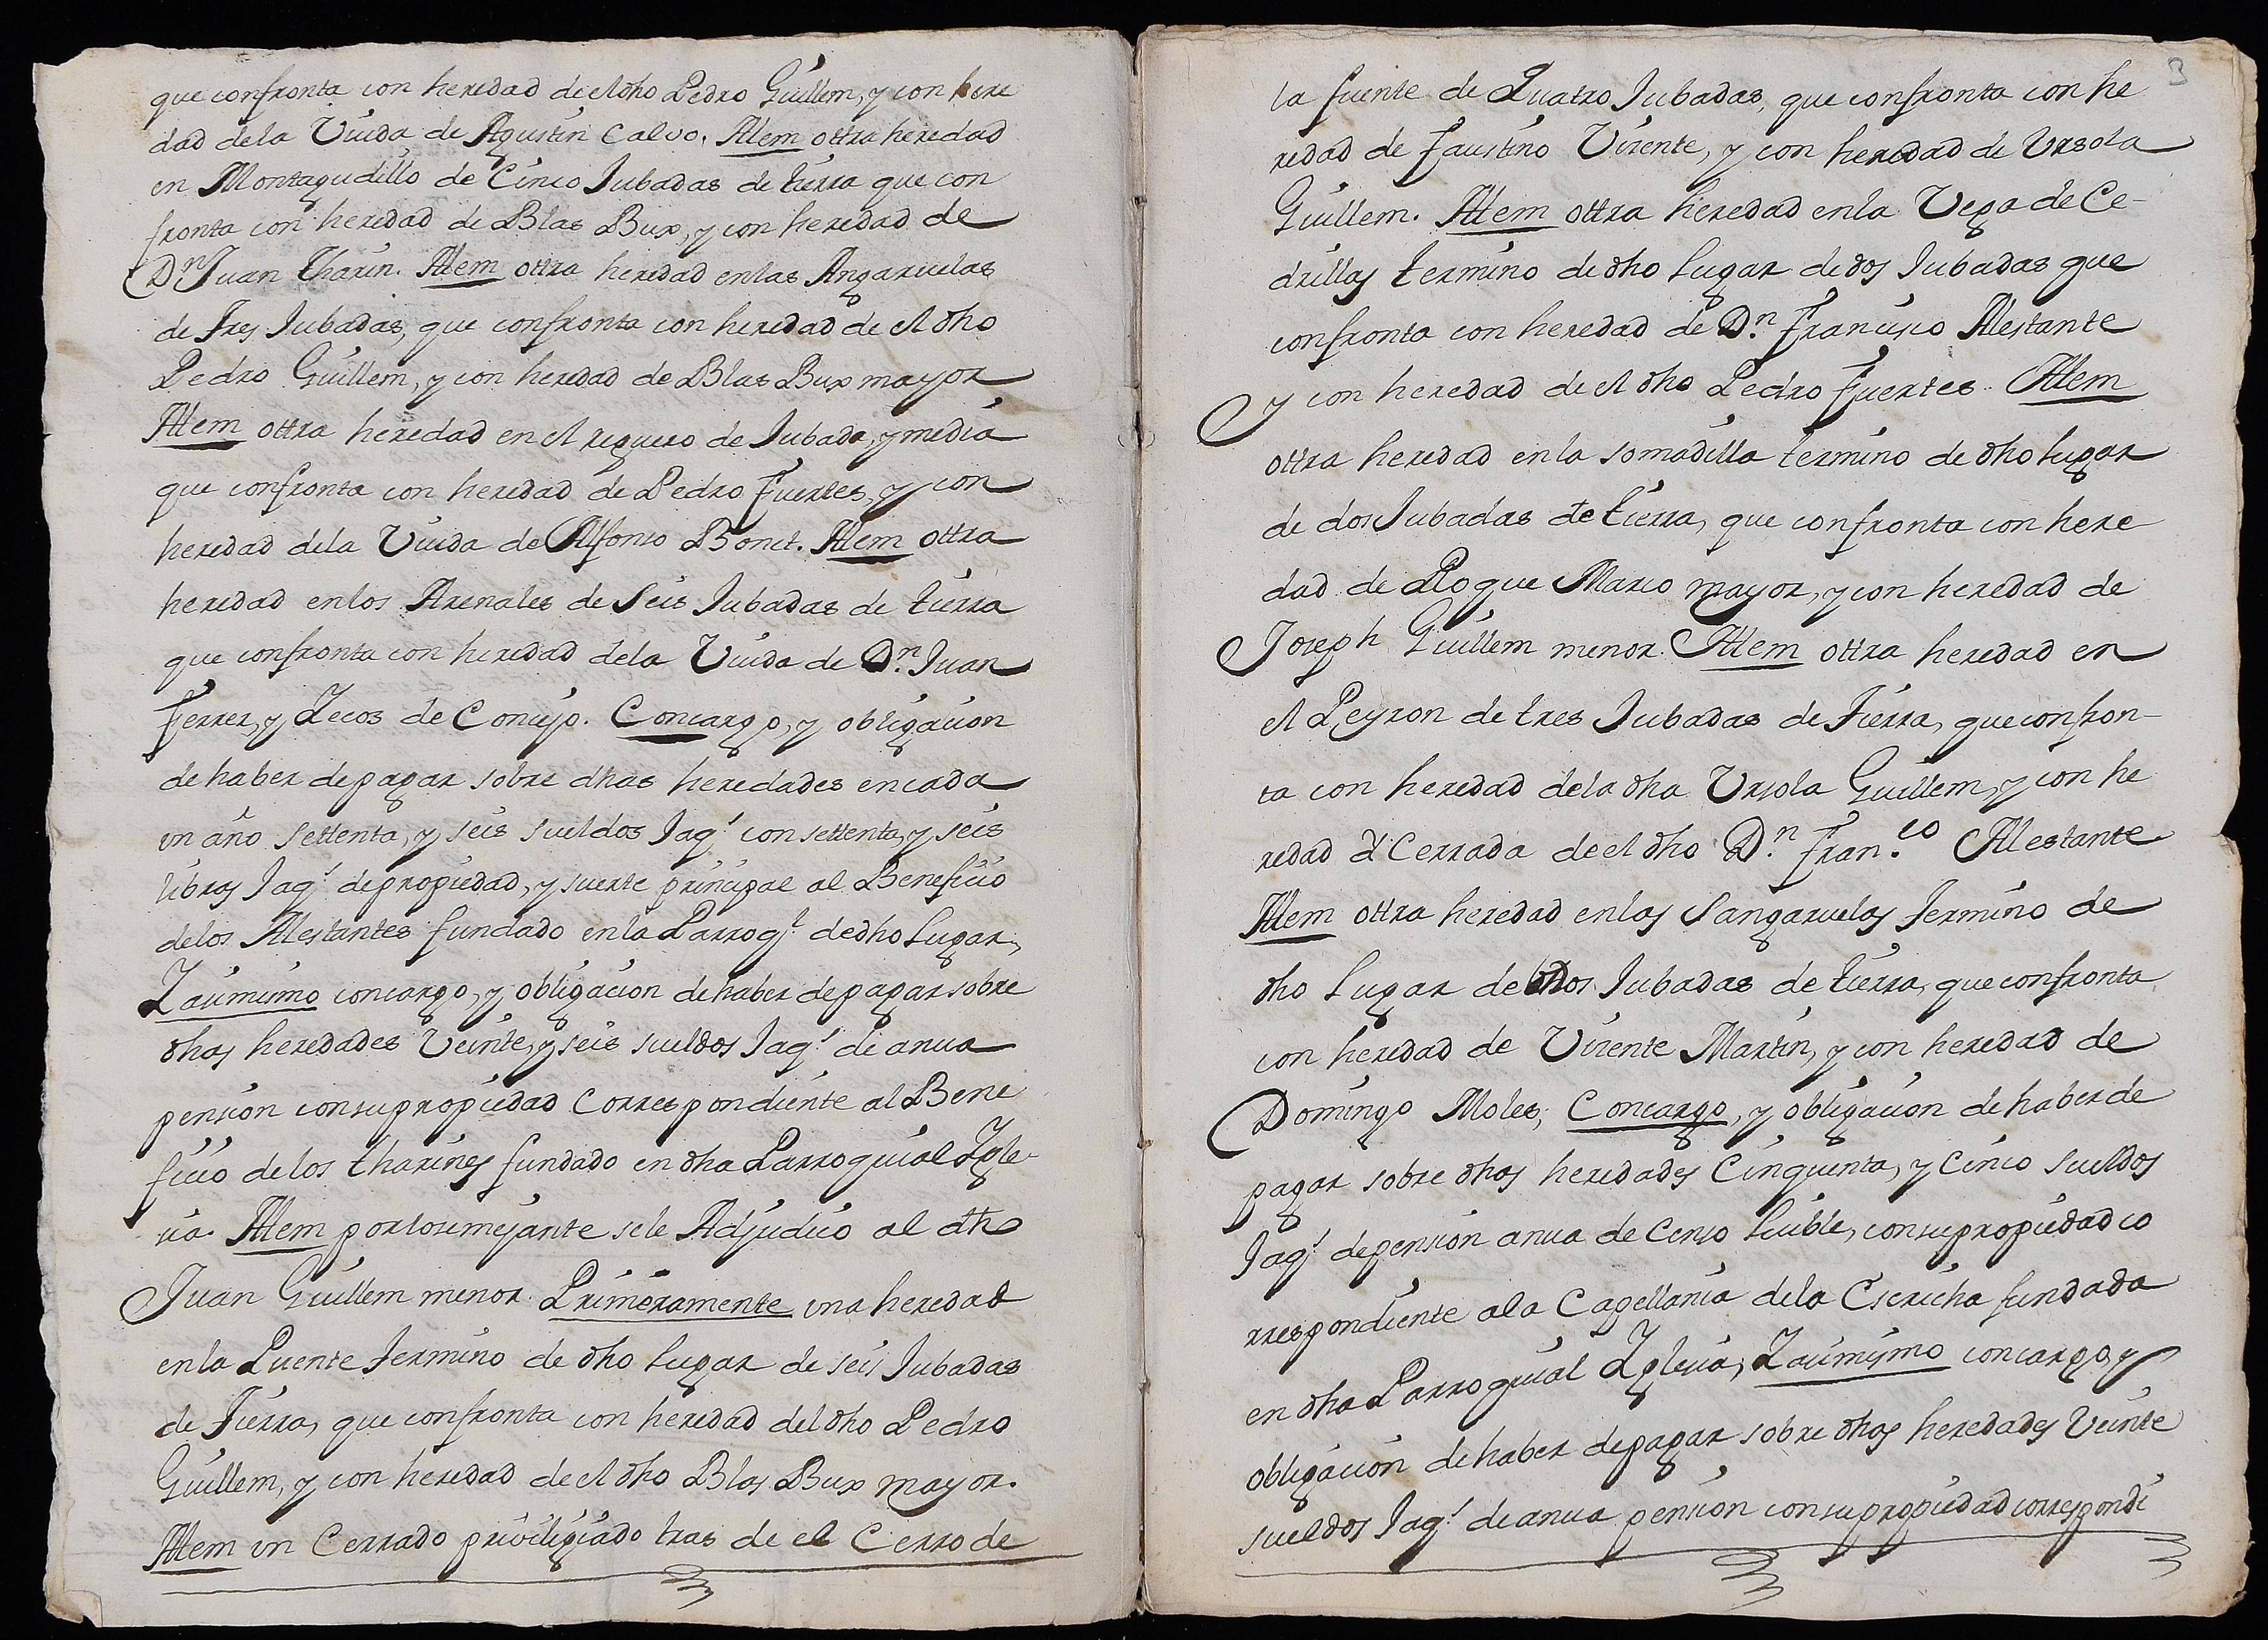 que confronta con heredad de el dho Pedro Guillem, y con here
dad dela Viuda de Agustin Calvo. Attem ottra heredad
en Montagudillo de Cinco Jubadas de tierra que con
fronta con heredad de Blas Bux, y con heredad de
Dn Juan tharin. Attem ottra heredad en las Angaruelas
de Tres Jubadas, que confronta con heredad de el dho
Pedro Guillem, y con heredad de Blas Bux mayor
Attem ottra heredad en el reguero de Jubada, y media
que confronta con heredad de Pedro Fuertes, y con
heredad dela Viuda de Alfonso Bonet. Attem ottra
heredad en los Arenales de Seis Jubadas de tierra
que confronta con heredad dela Viuda de Dn. Juan
Ferrer, y Lecos de Concejo. Concargo, y obligacion
de haber de pagar sobre dhas heredades en cada
un año Settenta, y seis sueldos Jaqs con settenta, y seis
libras Jaqs de propiedad, y suerte principal al Beneficio
delos Alestantes fundado en la Parroql dedho Lugar,
Zaimismo concargo, y obligacion de haber de pagar sobre
dhas heredades Veinte, y seis sueldos Jaqs de anua
pension consupropiedad Correspondiente al Bene
ficio de los tharines fundado en dha Parroquial Ygle-
cia. Attem porlosemejante sele Adjudico al dho
Juan Guillem menor. Primeramente una heredad
en la Puente Termino de dho Lugar de seis Jubadas
de Tierra, que confronta con heredad del dho Pedro
Guillem, y con heredad de el dho Blas Bux mayor.
Attem un Cerrado priviligiado tras de el Cerro de
3
la fuente de Quatro Jubadas, que confronta con he
redad de Faustino Vizente, y con heredad de Ursola
Guillem. Attem ottra heredad en la Vega de Ce-
drillas termino de dho Lugar de dos Jubadas que
confronta con heredad de Dn. Francisco Alestante
y con heredad de el dho Pedro Fuertes. Attem
ottra heredad en la somadilla termino de dho Lugar
de dos Jubadas de tierra, que confronta con here
dad de Roque Marco mayor, y con heredad de
Joseph Guillem menor. Attem ottra heredad en
el Peyron de tres Jubadas de Tierra, que confron-
ta con heredad dela dha Ursola Guillem, y con he
redad o Cerrada de el dho Dn. Fran.co Alestante
Attem ottra heredad en las Sangaruelas Termino de
dho Lugar de dos Jubadas de tierra, que confronta
con heredad de Vizente Martin, y con heredad de
Domingo Moles, Concargo, y obligacion de haber de
pagar sobre dhas heredades Cinquenta, y Cinco Sueldos
Jaqs de pension anua de Censo Luible, consupropiedad co
rrespondiente ala Capellania dela Escricha fundada
en dha Parroquial Yglecia, Zaimismo concargo, y
obligacion de haber de pagar sobre dhas heredades Veinte
sueldos Jaqs de anua pension consupropiedad correspondi